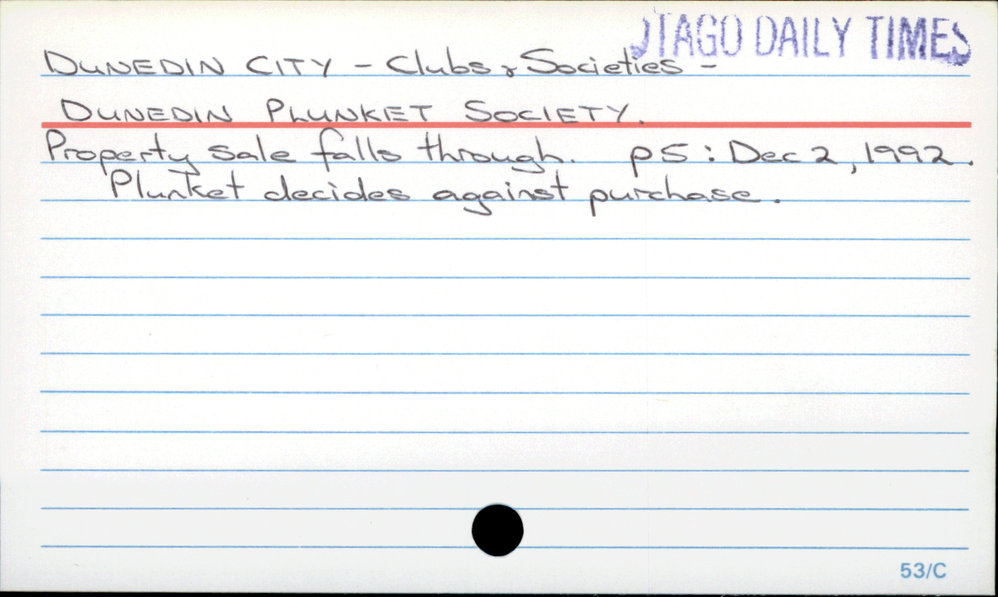 OTAGO DAILY TIMES
DUNEDIN CITY - Clubs & Societies -
DUNEDIN PLUNKET SOCIETY.
Property sale falls through. p5: Dec 2, 1992.
Plunket decides against purchase.
53/C